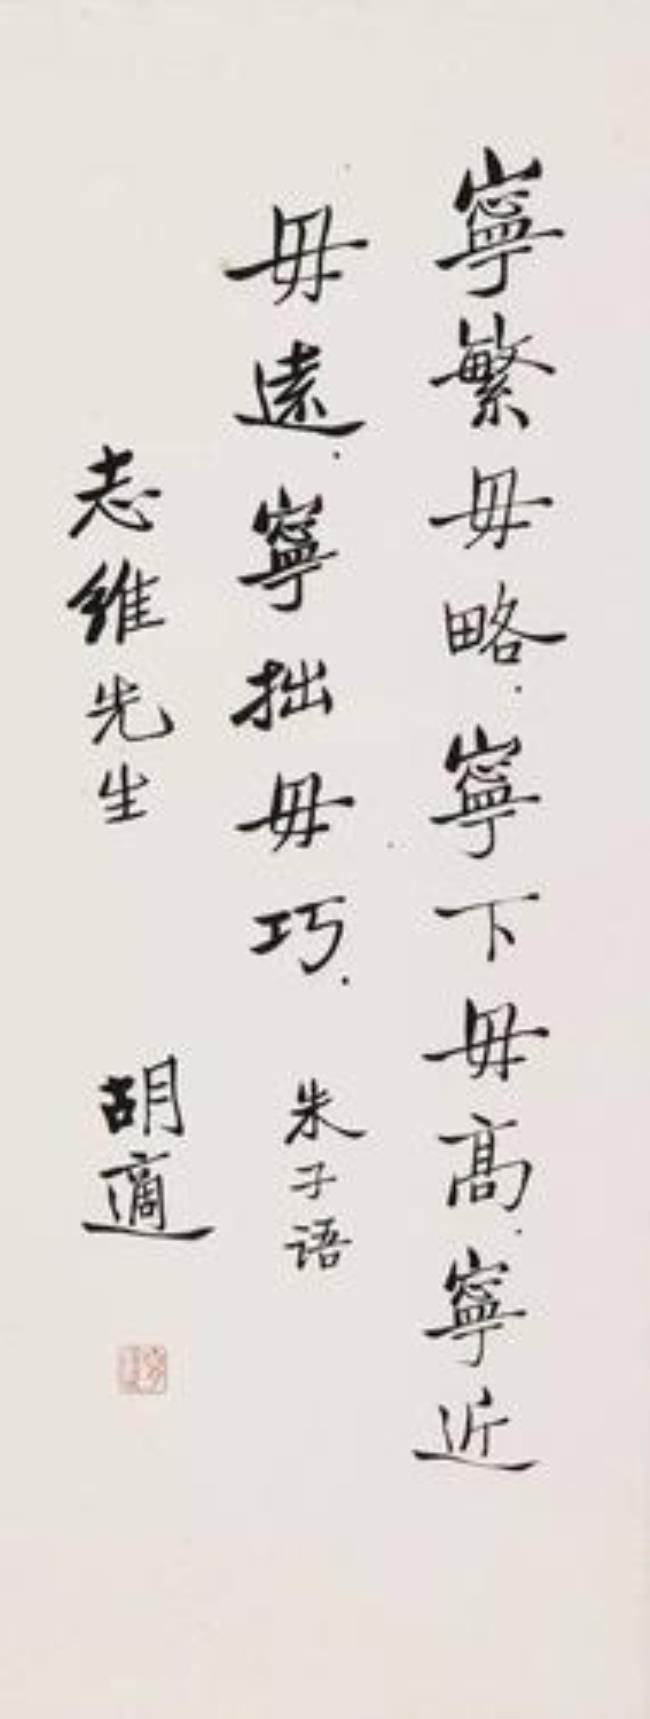 寧繁毋略.寧下毋高.寧近
毋遠.寧拙毋巧.
朱子语
志維先生
胡適